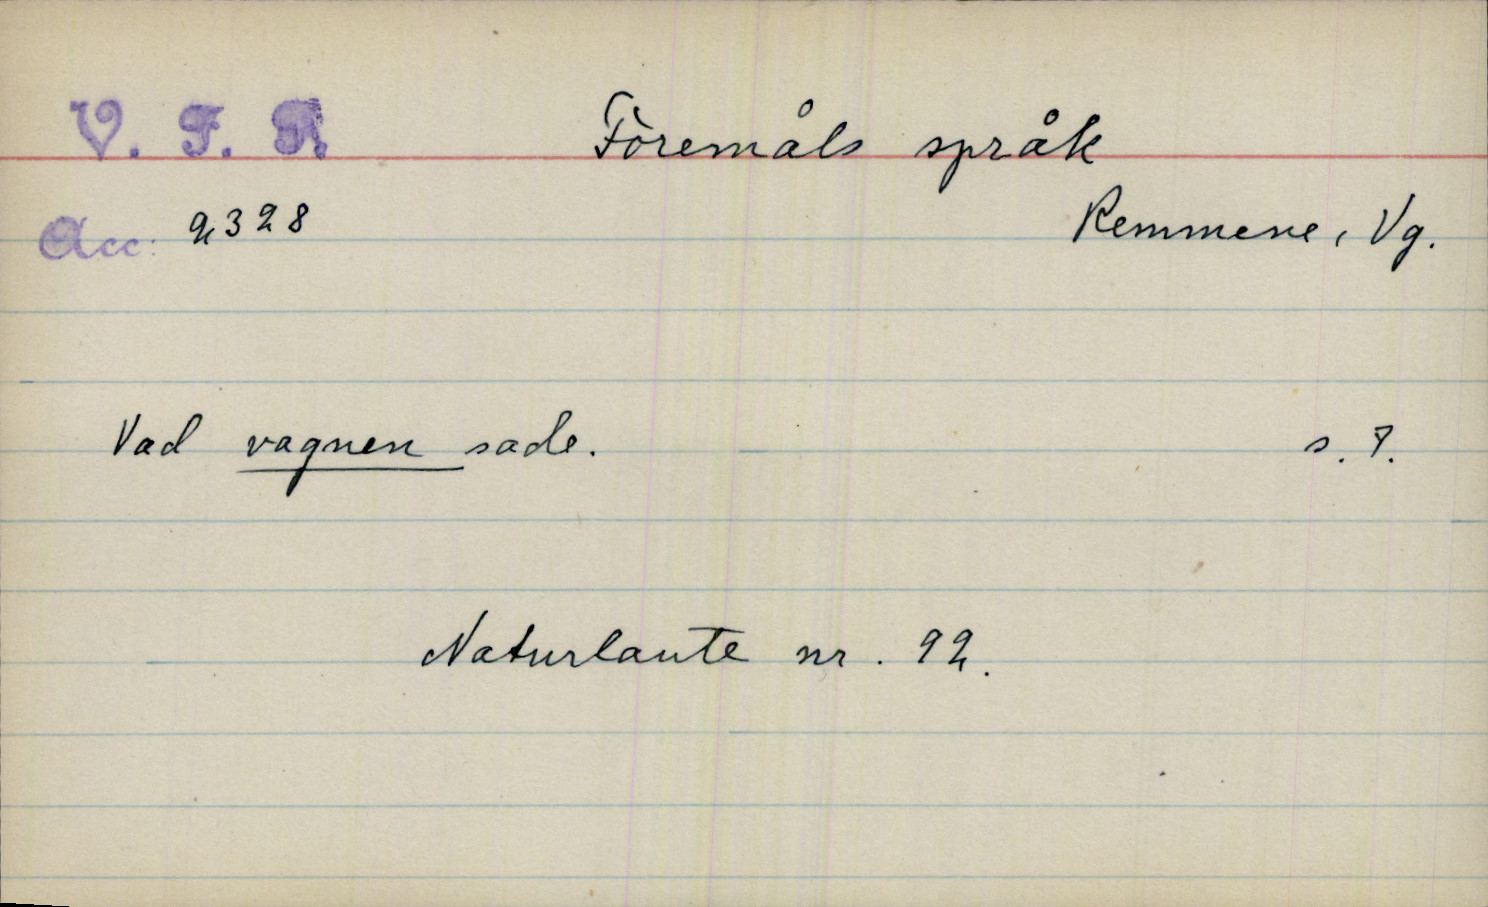 V. F. R
Föremåls språk
Acc: 2328
Remmene, Vg.
Vad vagnen sade. s. 7.
Naturlaute nr. 92.